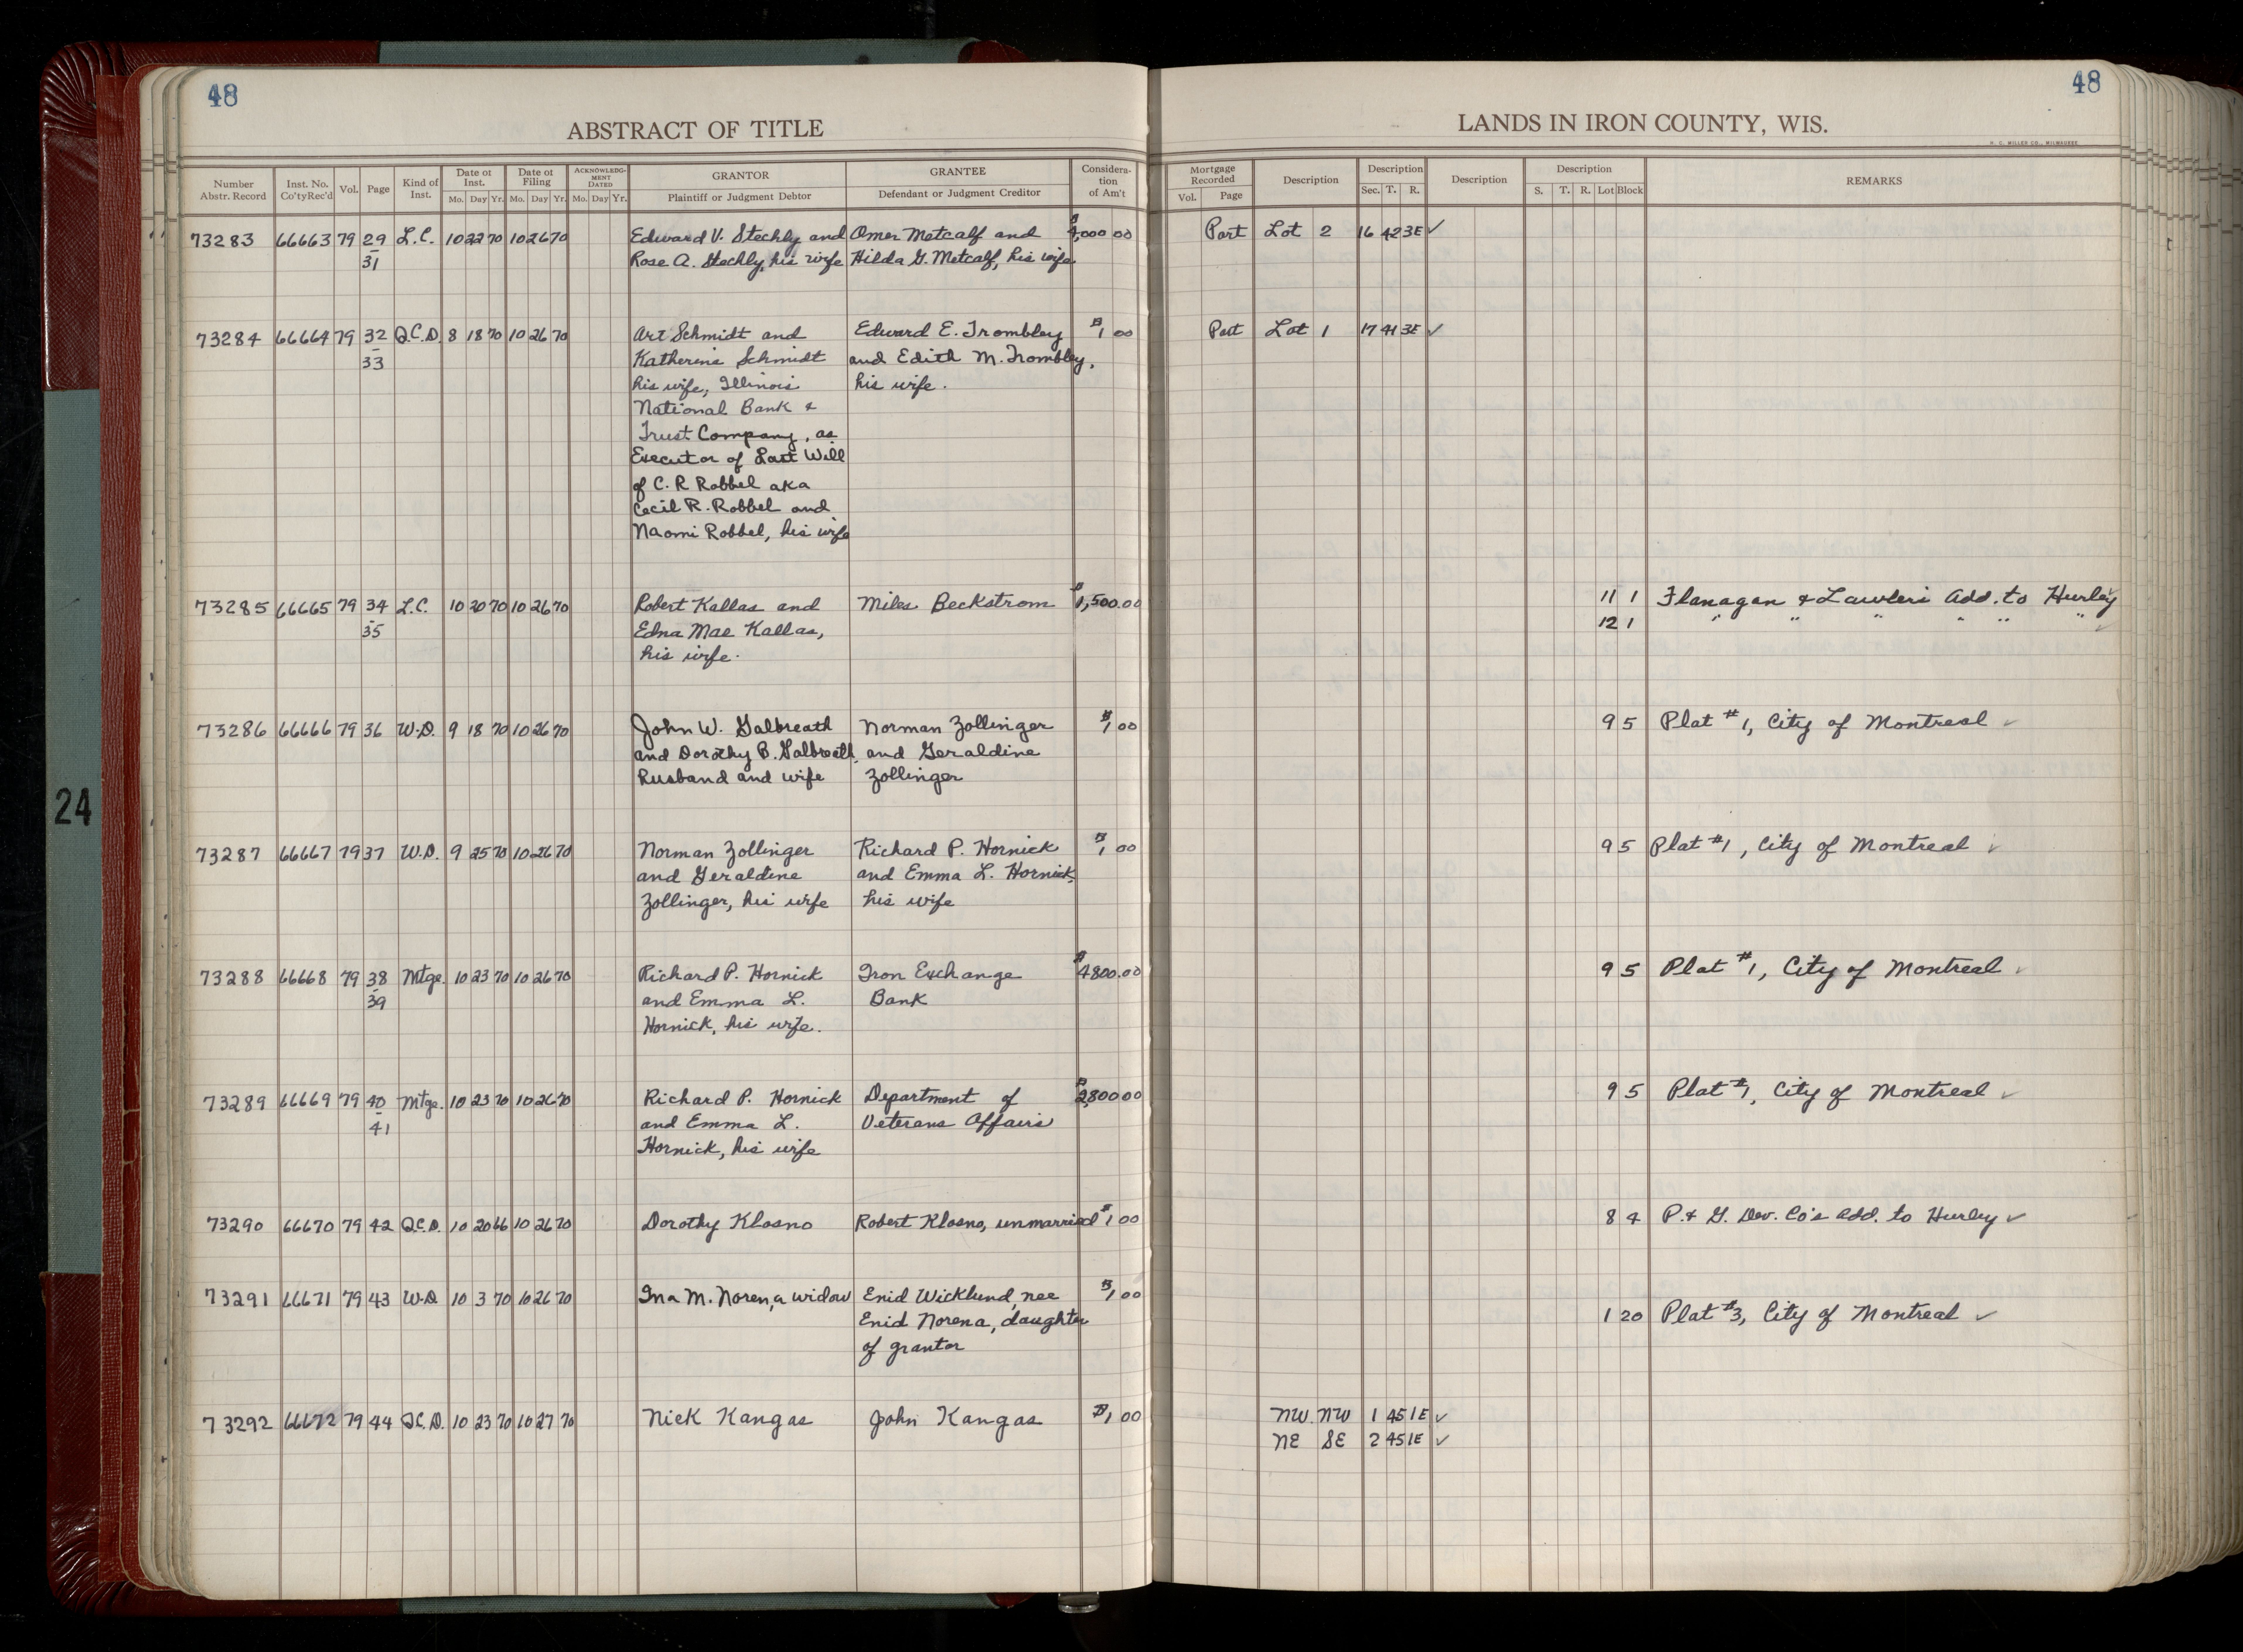 48
48
ABSTRACT OF TITLE
LANDS IN IRON COUNTY, WIS.
H. C. MILLER CO., MILWAUKEE
Number Abstr. Record | Inst. No. Co'ty Rec'd | Vol. | Page | Kind of Inst. | Date of Inst. Mo. Day Yr. | Date of Filing Mo. Day Yr. | ACKNOWLEDGMENT DATED Mo. Day Yr. | GRANTOR Plaintiff or Judgment Debtor | GRANTEE Defendant or Judgment Creditor | Consideration of Am't | Mortgage Recorded Vol. Page | Description | Description Sec. T. R. | Description | Description S. T. R. Lot Block | REMARKS
73283 66663 79 29 L.C. 10 22 70 10 26 70 Edward V. Stechly and Omer Metcalf and $4,000 00 Part Lot 2 16 42 3E ✓
31 Rose A. Stechly, his wife Hilda G. Metcalf, his wife
73284 66664 79 32 Q.C.D. 8 18 70 10 26 70 Art Schmidt and Edward E. Trombley $1 00 Part Lot 1 17 41 3E ✓
33 Katherine Schmidt and Edith M. Trombley,
his wife, Illinois his wife.
National Bank &
Trust Company, as
Executor of Last Will
of C. R Robbel aka
Cecil R. Robbel and
Naomi Robbel, his wife
73285 66665 79 34 L.C. 10 20 70 10 26 70 Robert Kallas and Miles Beckstrom $1,500.00 11 1 Flanagan & Lawler's Add. to Hurley
35 Edna Mae Kallas, 12 1 " " " " " " ✓
his wife.
73286 66666 79 36 W.D. 9 18 70 10 26 70 John W. Galbreath Norman Zollinger $1 00 9 5 Plat #1, City of Montreal ✓
and Dorothy B. Galbreath, and Geraldine
husband and wife Zollinger
73287 66667 79 37 W.D. 9 25 70 10 26 70 Norman Zollinger Richard P. Hornick $1 00 9 5 Plat #1, City of Montreal ✓
and Geraldine and Emma L. Hornick,
Zollinger, his wife his wife
73288 66668 79 38 Mtge. 10 23 70 10 26 70 Richard P. Hornick Iron Exchange $4800.00 9 5 Plat #1, City of Montreal ✓
39 and Emma L. Bank
Hornick, his wife.
73289 66669 79 40 Mtge. 10 23 70 10 26 70 Richard P. Hornick Department of $2,800 00 9 5 Plat #1, City of Montreal ✓
41 and Emma L. Veterans Affairs
Hornick, his wife
73290 66670 79 42 Q.C.D. 10 20 66 10 26 70 Dorothy Klosno Robert Klosno, unmarried $1 00 8 4 P. & G. Dev. Co's Add. to Hurley ✓
73291 66671 79 43 W.D 10 3 70 10 26 70 Ina M. Noren, a widow Enid Wicklund, nee $1 00
Enid Norena, daughter 1 20 Plat #3, City of Montreal ✓
of grantor
73292 66672 79 44 Q.C.D. 10 23 70 10 27 70 Nick Kangas John Kangas $1 00 NW NW 1 45 1E ✓
NE SE 2 45 1E ✓
24